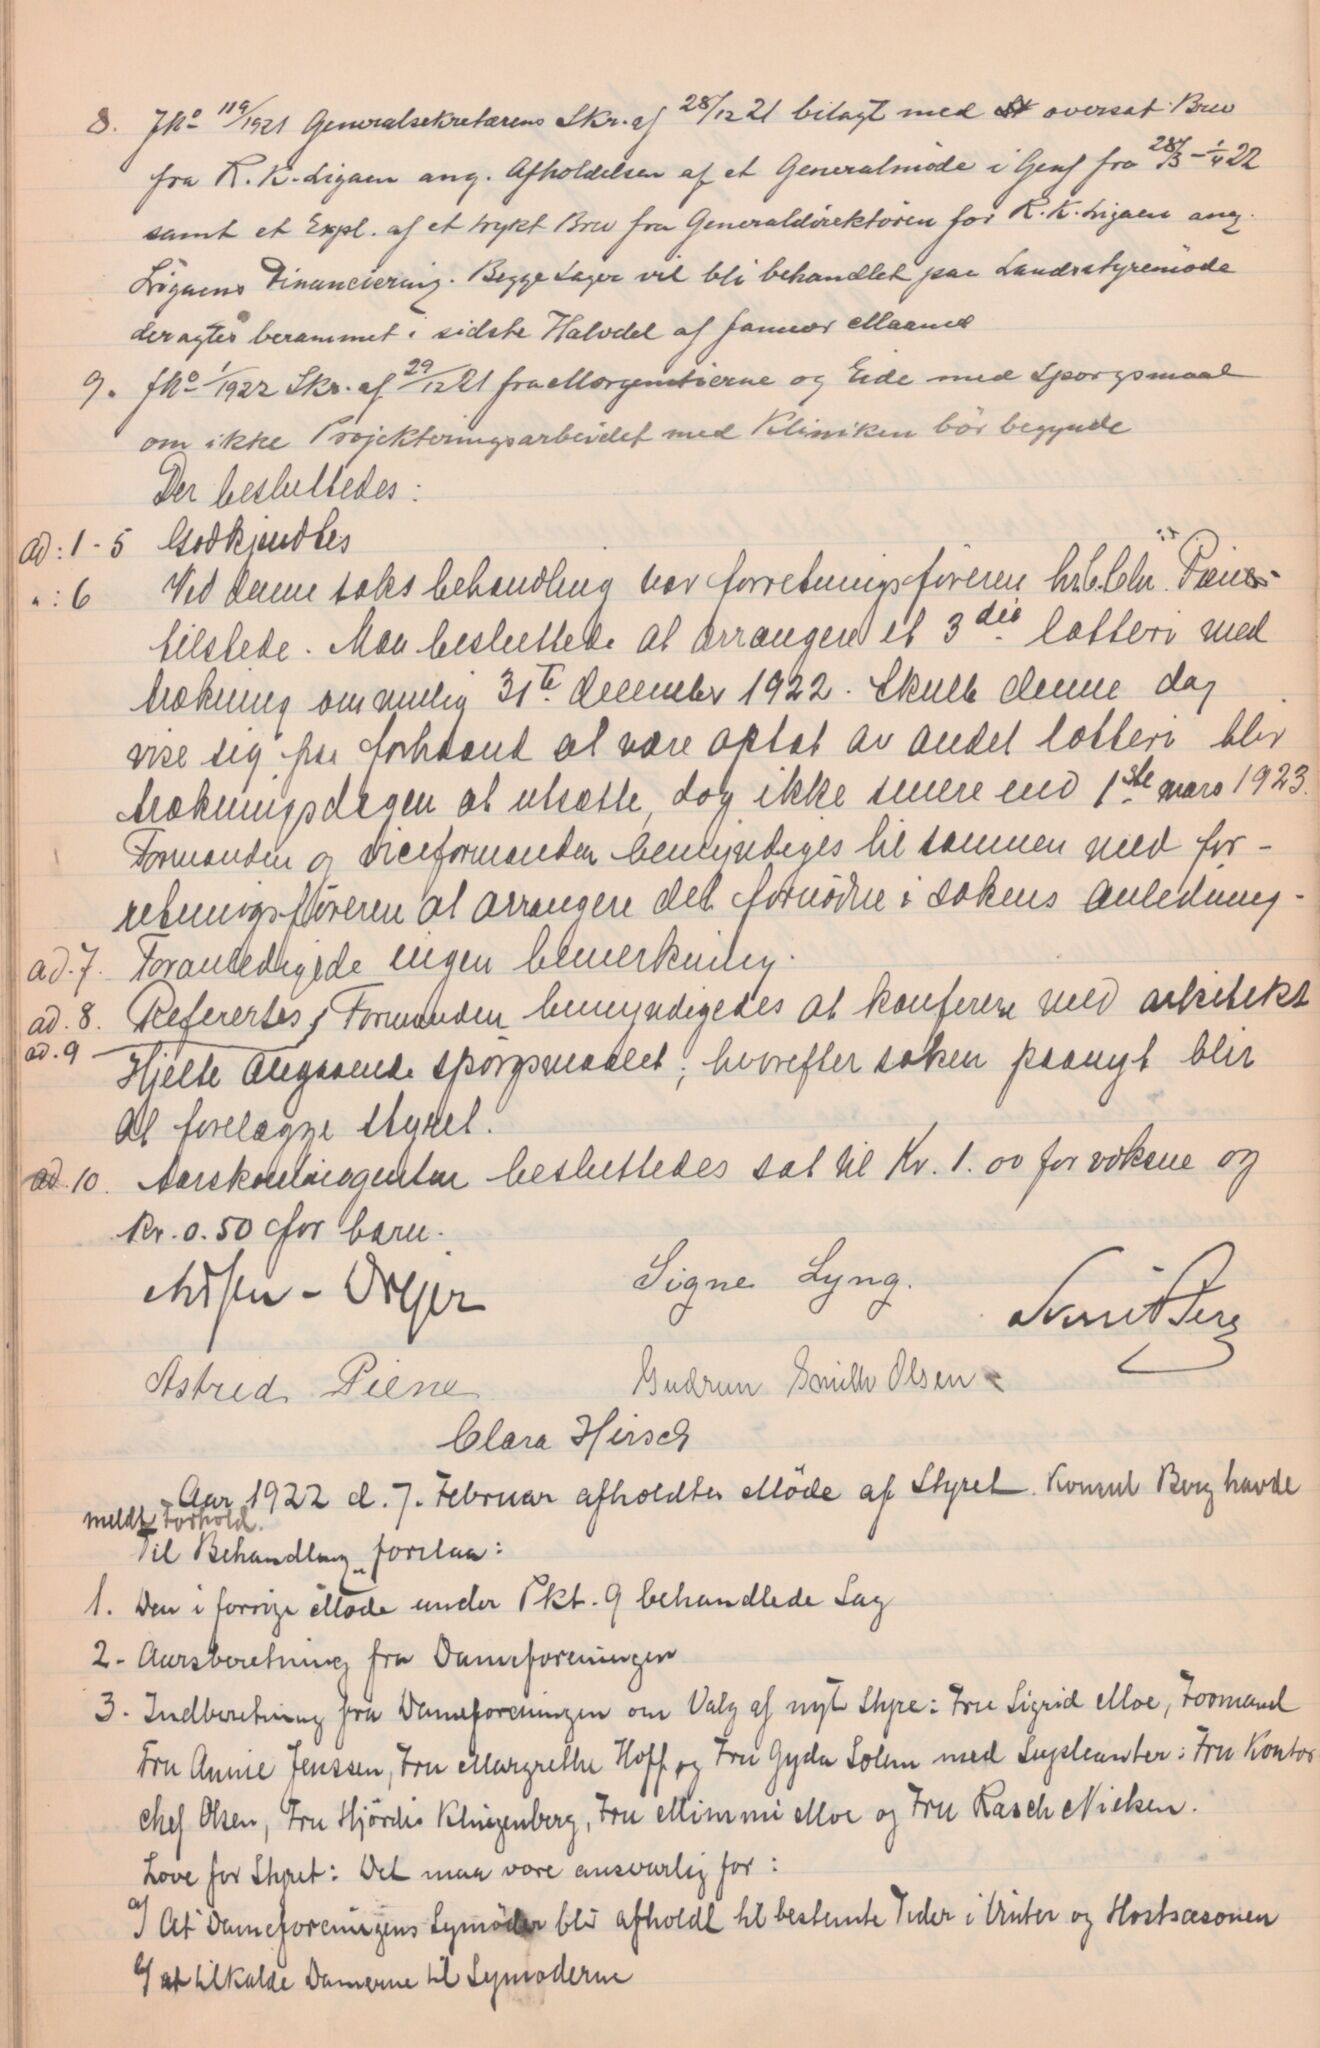 8. JNo 119/1921 Generalsekretærens Skr. af 28/12 21 bilagt med oversat Brev
fra R. K. Ligaen ang. Afholdelsen af et Generalmøde i Genf fra 28/3 - 1/4 22
samt et Expl. af et trykt Brev fra Generaldirektøren for R. K. Ligaen ang.
Ligaens Financiering. Begge Sager vil bli behandlet paa Landsstyremøde
der agtes berammet i sidste Halvdel af Januar Maaned
9. JNo 1/1922 Skr. af 29/12 21 fra Morgenstierne og Eide med Spørgsmaal
om ikke Projekteringsarbeidet med Kliniken bør begynde
Der besluttedes:
ad: 1-5 Godkjendtes
" : 6 Ved denne saks behandling var forretningsføreren hr. Chr. Piene
tilstede. Man besluttede at arrangere et 3die lotteri med
trækning om mulig 31te december 1922. Skulde denne dag
vise sig paa forhaand at være optat av andet lotteri blir
trækningsdagen at utsætte, dog ikke senere end 1ste mars 1923.
Formanden og viceformanden bemyndiges til sammen med for-
retningsføreren at arrangere det fornødne i sakens anledning.
ad. 7. Foranledigede ingen bemerkning.
ad. 8. Refereredes
ad. 9 Formanden bemyndigedes at konferere med arkitekt
Hjelte angaaende spørgsmaalet, hvorefter saken paanyt blir
at forelægge styret.
ad. 10. Aarskontingenten besluttedes sat til Kr. 1.00 for voksne og
kr. 0.50 for barn.
Signe Lyng.
Astrid Piene Gudrun Smith Olsen
Clara Hirsch
Aar 1922 d. 7. Februar afholdtes Møde af Styret. Konsul Berg havde
meldt Forhold.
Til Behandling forelaa:
1. Den i forrige Møde under Pkt. 9 behandlede Sag
2. Aarsberetning fra Dameforeningen
3. Indberetning fra Dameforeningen om Valg af nyt Styre: Fru Sigrid Moe, Formand
Fru Annie Jenssen, Fru Margrethe Hoff og Fru Gyda Solem med Supleanter: Fru Kontor
chef Olsen, Fru Hjørdis Klingenberg, Fru Mimmi Moe og Fru Rasch Nielsen.
Love for Styret: Det maa være ansvarlig for:
a/ At Dameforeningens Symøder bli afholdt til bestemte Tider i Vinter og Høstsæsonen
b/ at tilkalde Damerne til Symøderne